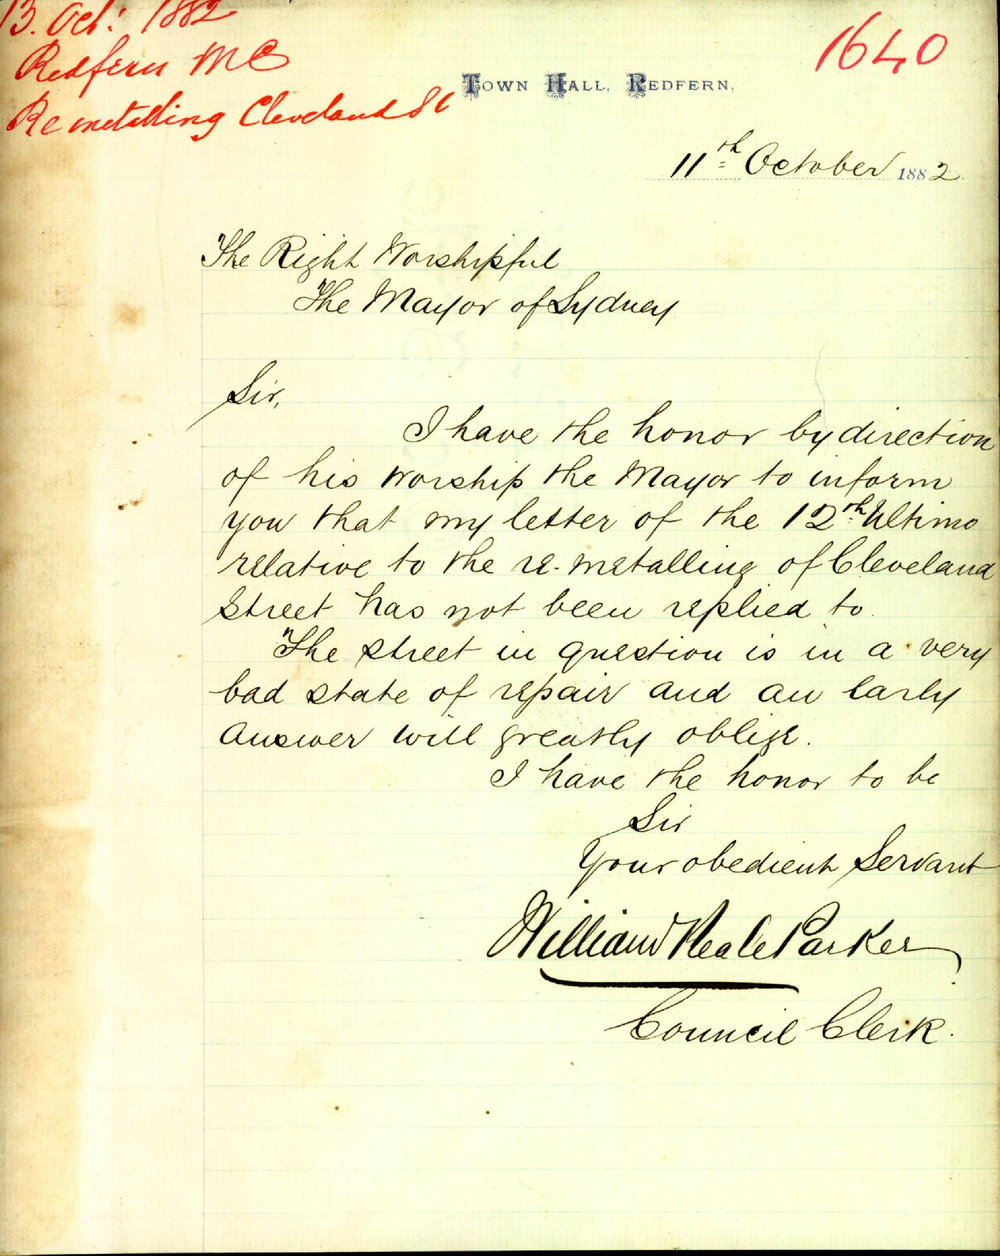 13. Oct: 1882
Redfern MC
Remetalling Cleveland St
1640
TOWN HALL, REDFERN.
11th October 1882
The Right Worshipful
The Mayor of Sydney
Sir,
I have the honor by direction
of his Worship the Mayor to inform
you that my letter of the 12th Ultimo
relative to the re-metalling of Cleveland
Street has not been replied to.
The street in question is in a very
bad state of repair and an early
answer will greatly oblige.
I have the honor to be
Sir
Your obedient Servant
William Neale Parker
Council Clerk.